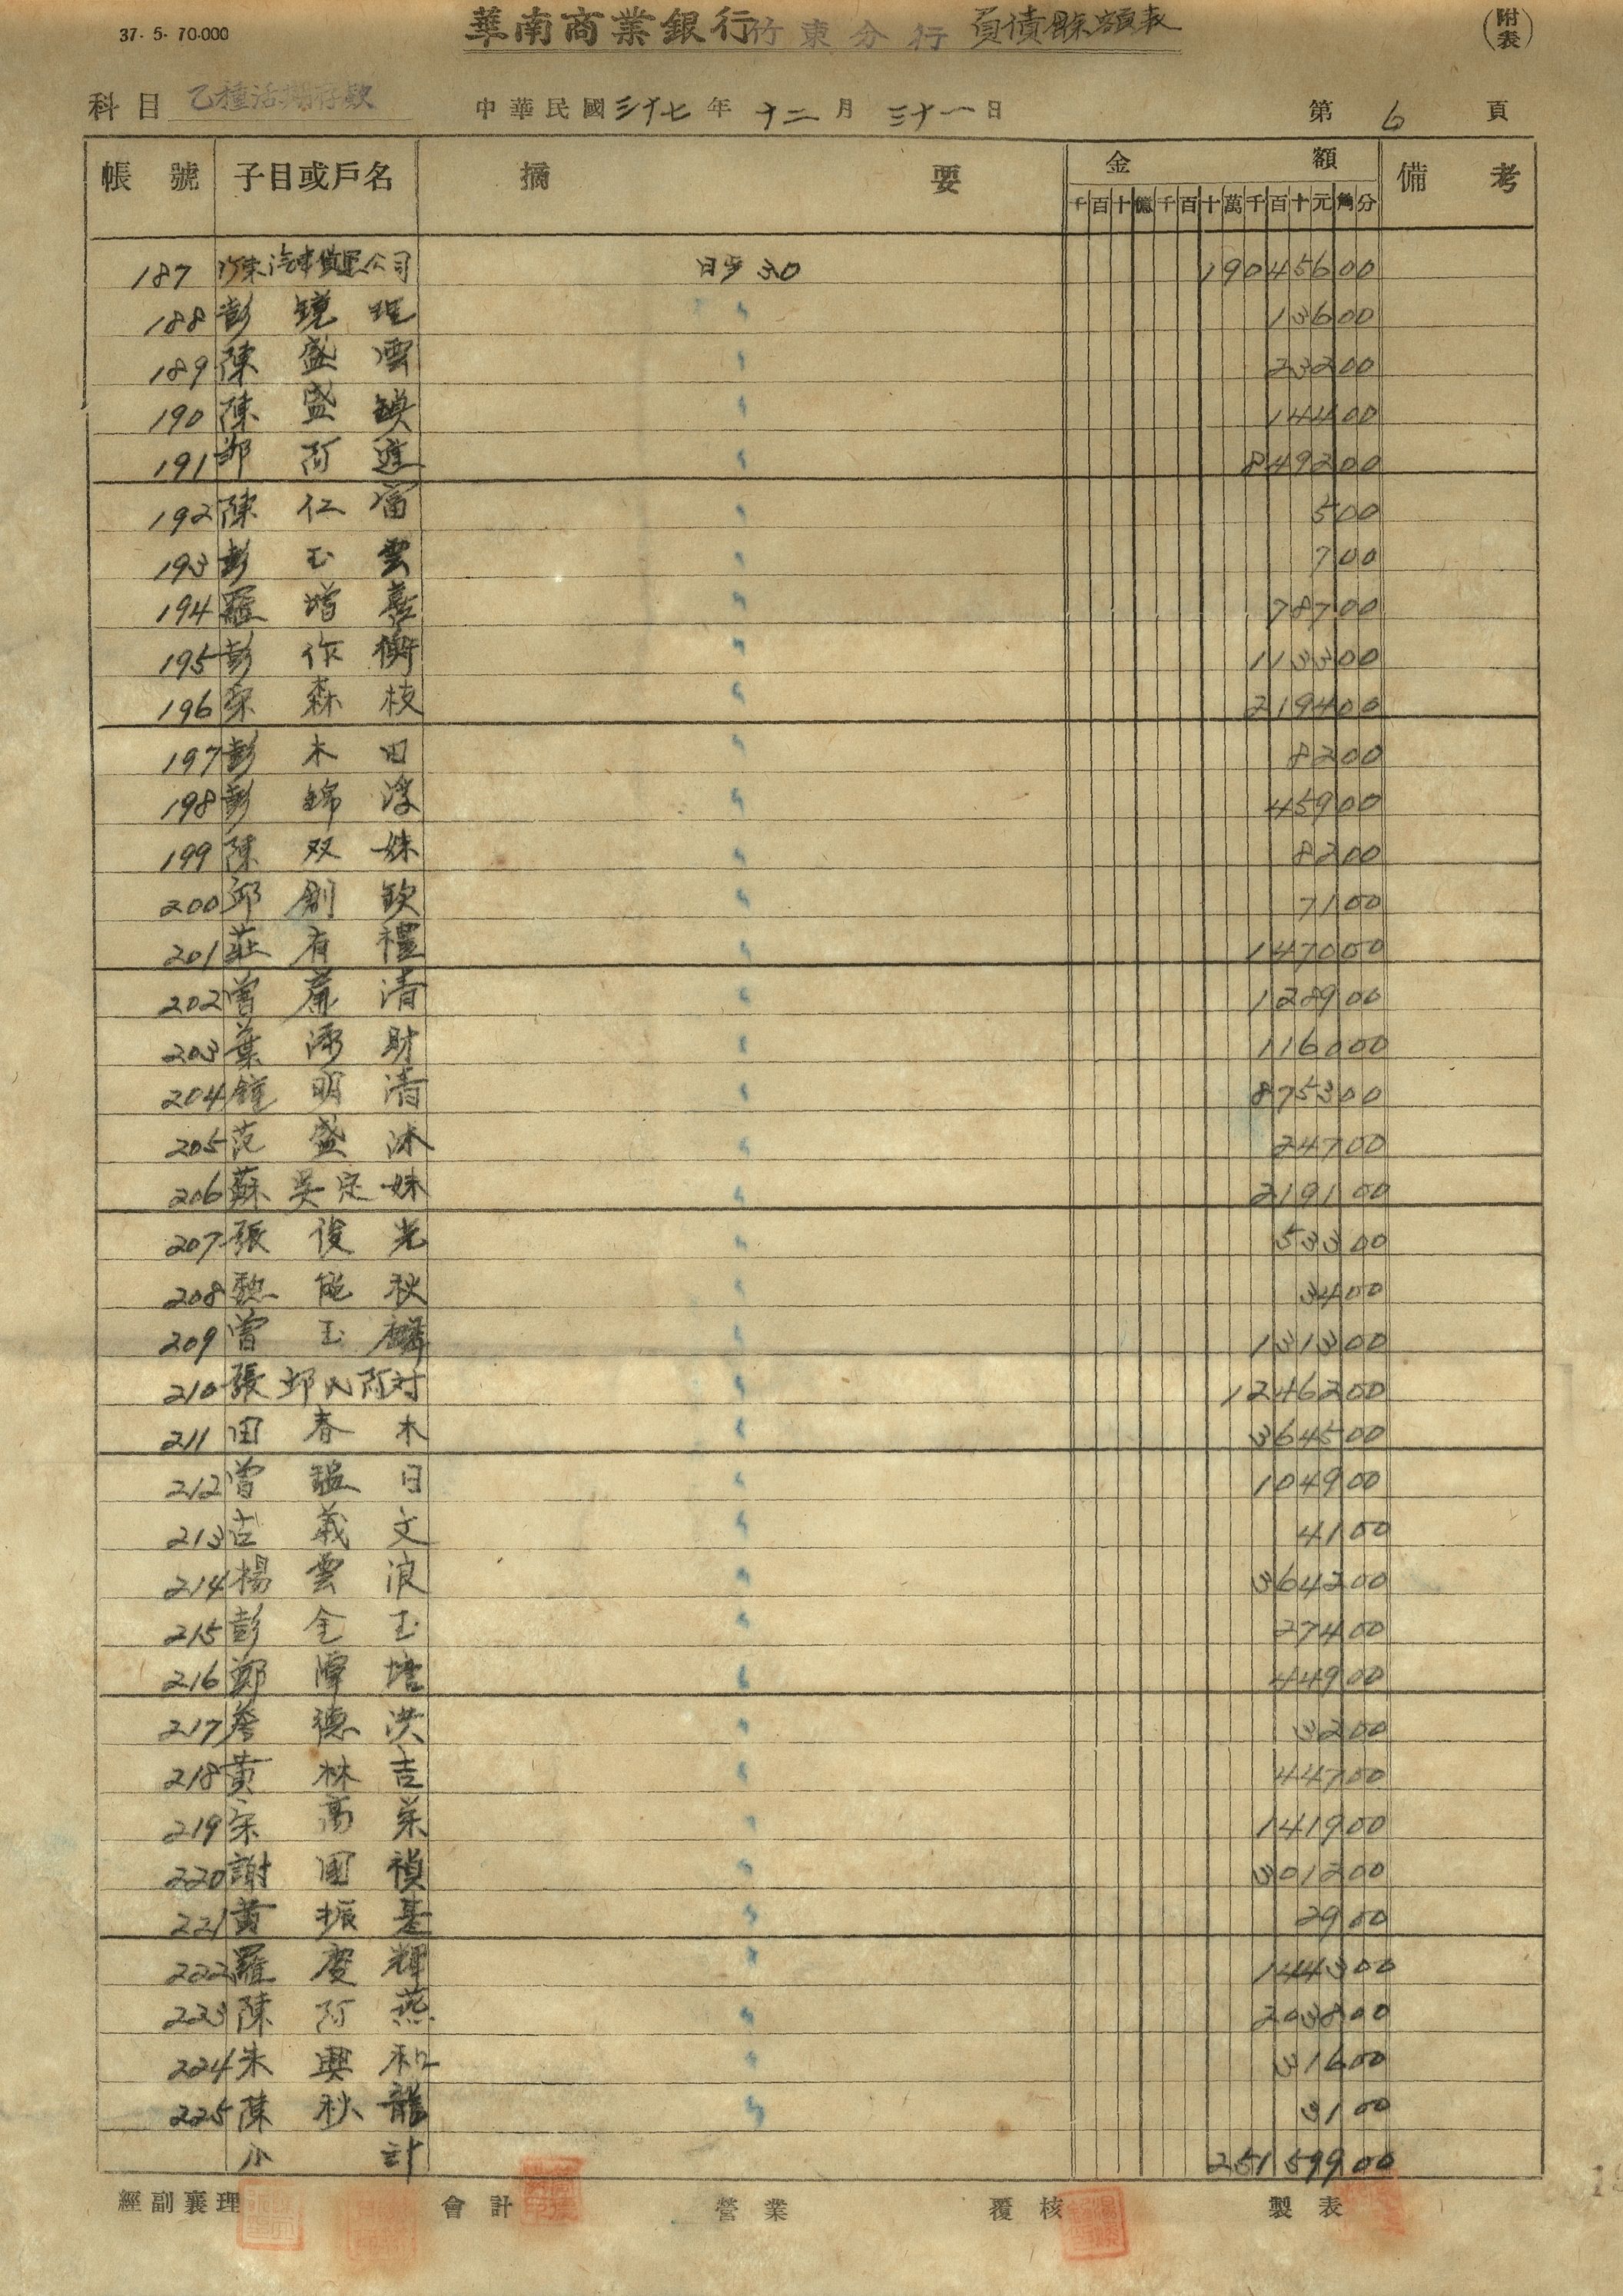 37. 5. 70.000
華南商業銀行竹東分行 負債餘額表
(附表)
科目 乙種活期存款 中華民國三十七年十二月三十一日 第6頁
帳號 子目或戶名 摘要 金額 備考
千百十億千百十萬千百十元角分
187 竹東汽車貨運公司 日步30 19045600
188 彭鏡 13600
189 陳盛雲 23200
190 陳盛鎮 14400
191 鄧阿進 849200
192 陳仁富 500
193 彭玉雲 700
194 羅增 78700
195 彭作衡 113300
196 森枝 219400
197 彭木田 8200
198 彭錦浮 45900
199 陳双妹 8200
200 邱創欽 7100
201 莊有禮 147000
202 曾清 128900
203 葉添財 116000
204 鐘明清 875300
205 范盛沐 24700
206 蘇吳定妹 219100
207 張俊光 53300
208 魏能秋 3400
209 曾玉麟 131300
210 張邱氏阿対 1246200
211 田春木 364500
212 曾日 104900
213 古義文 4100
214 楊雲浪 364200
215 彭全玉 27400
216 鄭潭培 44900
217 詹德洪 3200
218 黃林吉 44700
219 宋高栄 141900
220 謝国禎 301200
221 黃振基 2900
222 羅慶輝 144300
223 陳阿燕 203800
224 朱興和 31600
225 陳秋龍 3100
小計 25159900
經副襄理 會計 營業 覆核 製表